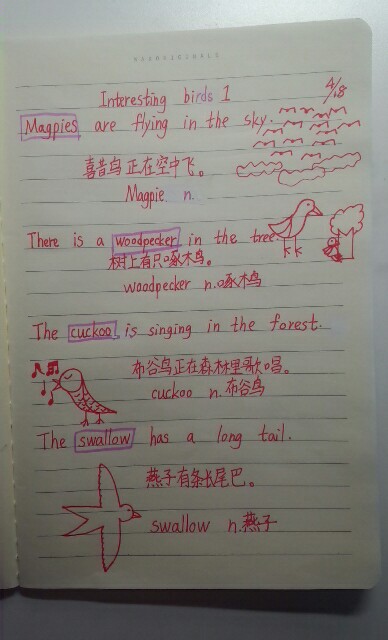 Interesting birds 1
4/18
Magpies are flying in the sky.
喜昔鸟正在空中飞。
Magpie n.
There is a woodpecker in the tree.
树上有只啄木鸟。
woodpecker n.啄木鸟
The cuckoo is singing in the forest.
布谷鸟正在森林里歌唱。
cuckoo n.布谷鸟
The swallow has a long tail.
燕子有条长尾巴。
swallow n.燕子